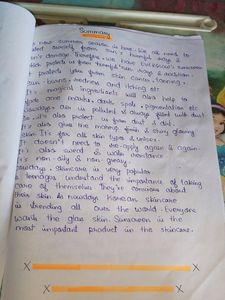 Summary
now summer season is here. We all need to
protect ourself from sun's harmful rays &
sun's damage therefore we have everyuse's sunscreen
that protect us from harmful sun rays & radiation.
It protects you from skin cancer, tanning,
sun-burns, redness and itching etc.
It's magical ingredients will also help to
fade acne marks, dark spots, pigmentation etc.
Nowadays air is polluted & always filled with dust
so, it's also protect us from dust & dirt.
It's also gives no makeup finish & shiny glowing
skin. It's for all skin types & unisex.
It doesn't need to re-apply again & again.
It's also sweat & water resistance.
It's non-oily & non-greasy.
Nowadays, skincare is very popular.
Teenagers understand the importance of taking
care of themselves they're conscious about
their skin & nowadays Korean skincare
is trending all over the world. Everyone
wants the glass skin. Sunscreen is the
most important product in the skincare.